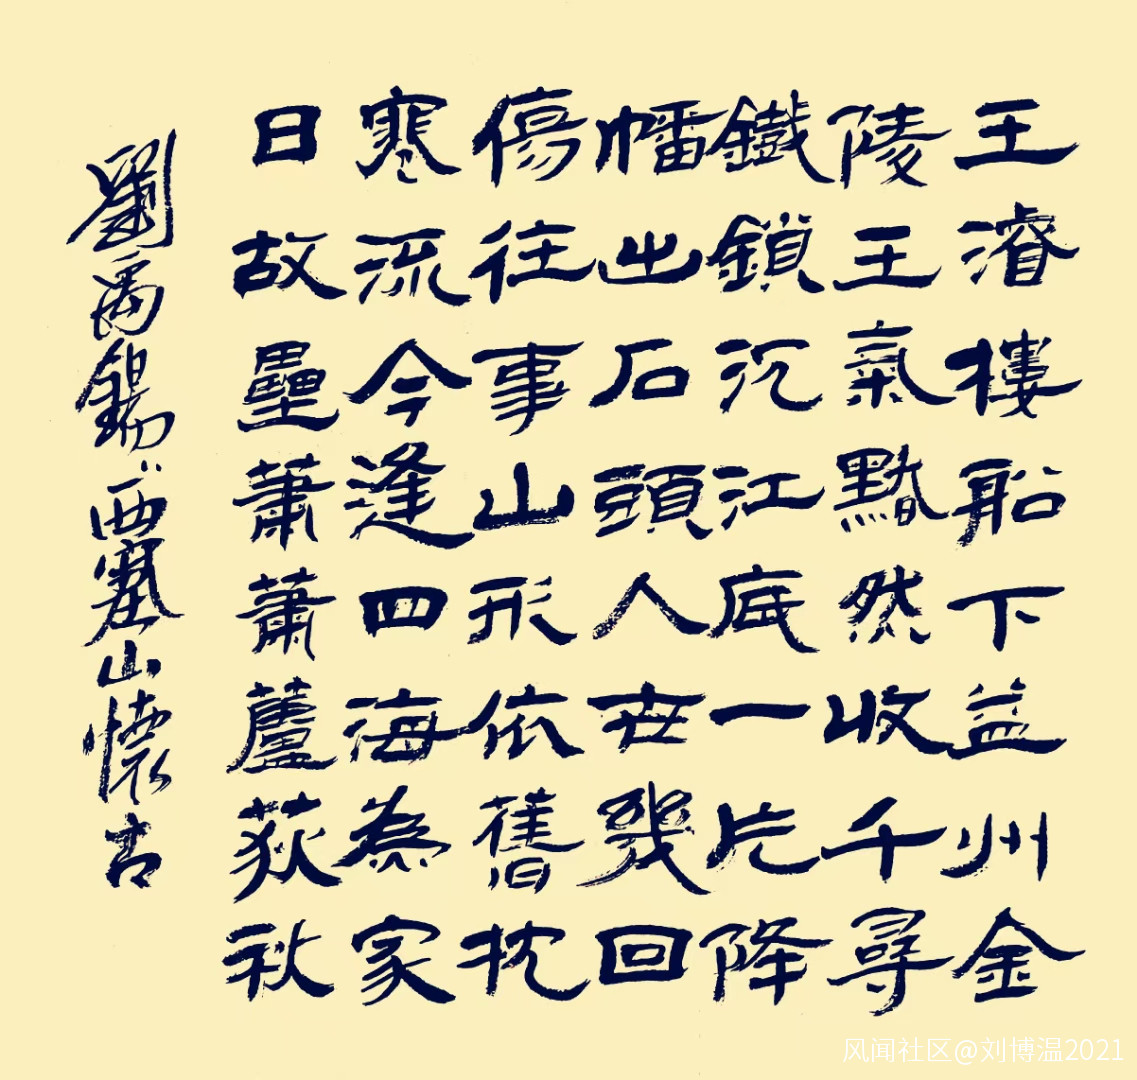 王濬樓船下益州金
陵王氣黯然收千尋
鐵鎖沉江底一片降
幡出石頭人世幾回
傷往事山形依舊枕
寒流今逢四海為家
日故壘蕭蕭蘆荻秋
劉禹錫：西塞山懷古
风闻社区@刘博温2021